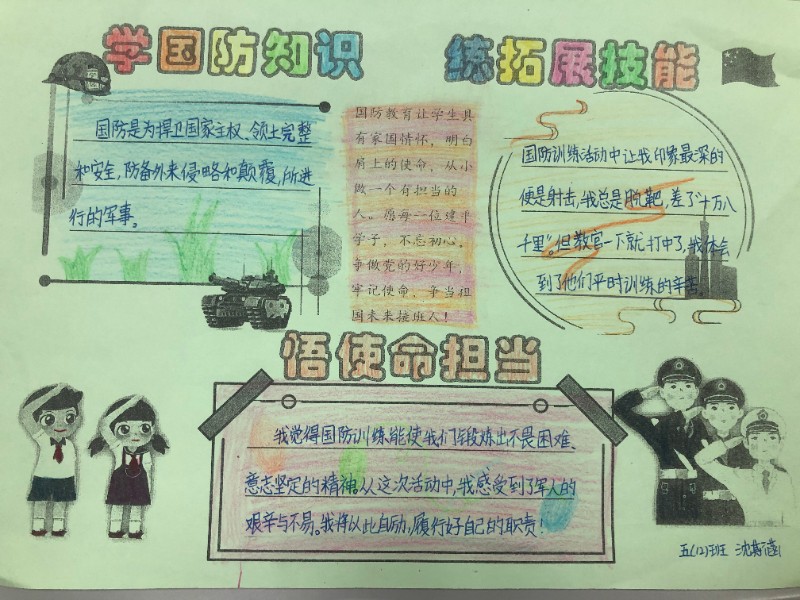 学国防知识
练拓展技能
国防是为捍卫国家主权、领土完整
和安全,防备外来侵略和颠覆,所进
行的军事。
国防教育让学生具
有家国情怀,明白
肩上的使命,从小
做一个有担当的
人。愿每一位建平
学子,不忘初心,
争做党的好少年,
牢记使命,争当祖
国未来接班人!
国防训练活动中让我印象最深的
便是射击,我总是脱靶,差了“十万八
千里”。但教官一下就打中了,我体会
到了他们平时训练的辛苦。
悟使命担当
我觉得国防训练能使我们锻炼出不畏困难、
意志坚定的精神。从这次活动中,我感受到了军人的
艰辛与不易。我将以此自励,履行好自己的职责!
五(12)班 沈